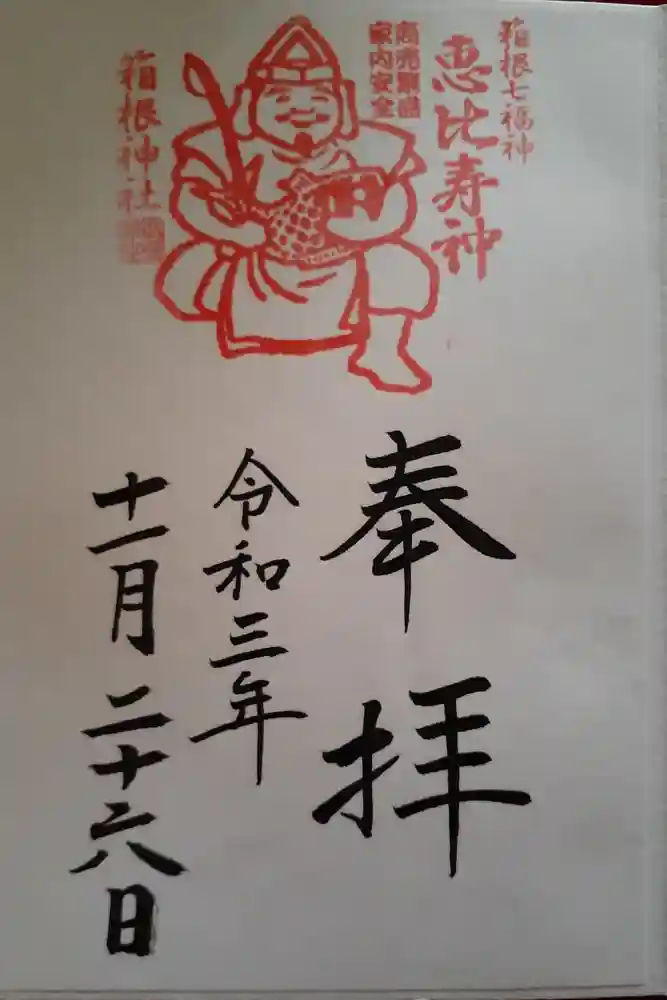 箱根七福神
恵比寿神
商売繁盛
家内安全
箱根神社
奉拝
令和三年
十一月二十六日